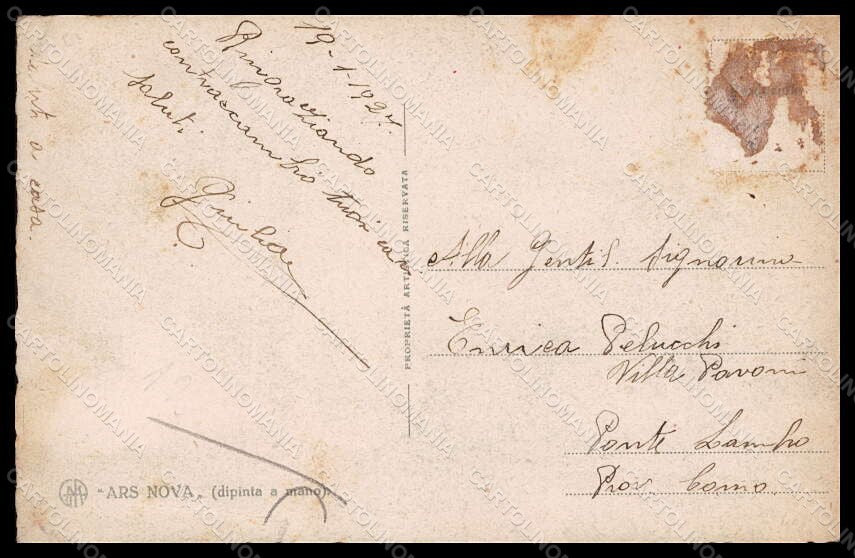 19-1-1927.
Ringraziando
contraccambio tuoi cari
saluti.
Giulia
a casa.
PROPRIETÀ ARTISTICA RISERVATA
Alla Gentil. Signorina
Enrica Pelucchi
Villa Pavoni
Ponte Lambro
Prov. Como.
"ARS NOVA„ (dipinta a mano)
CARTOLINOMANIA